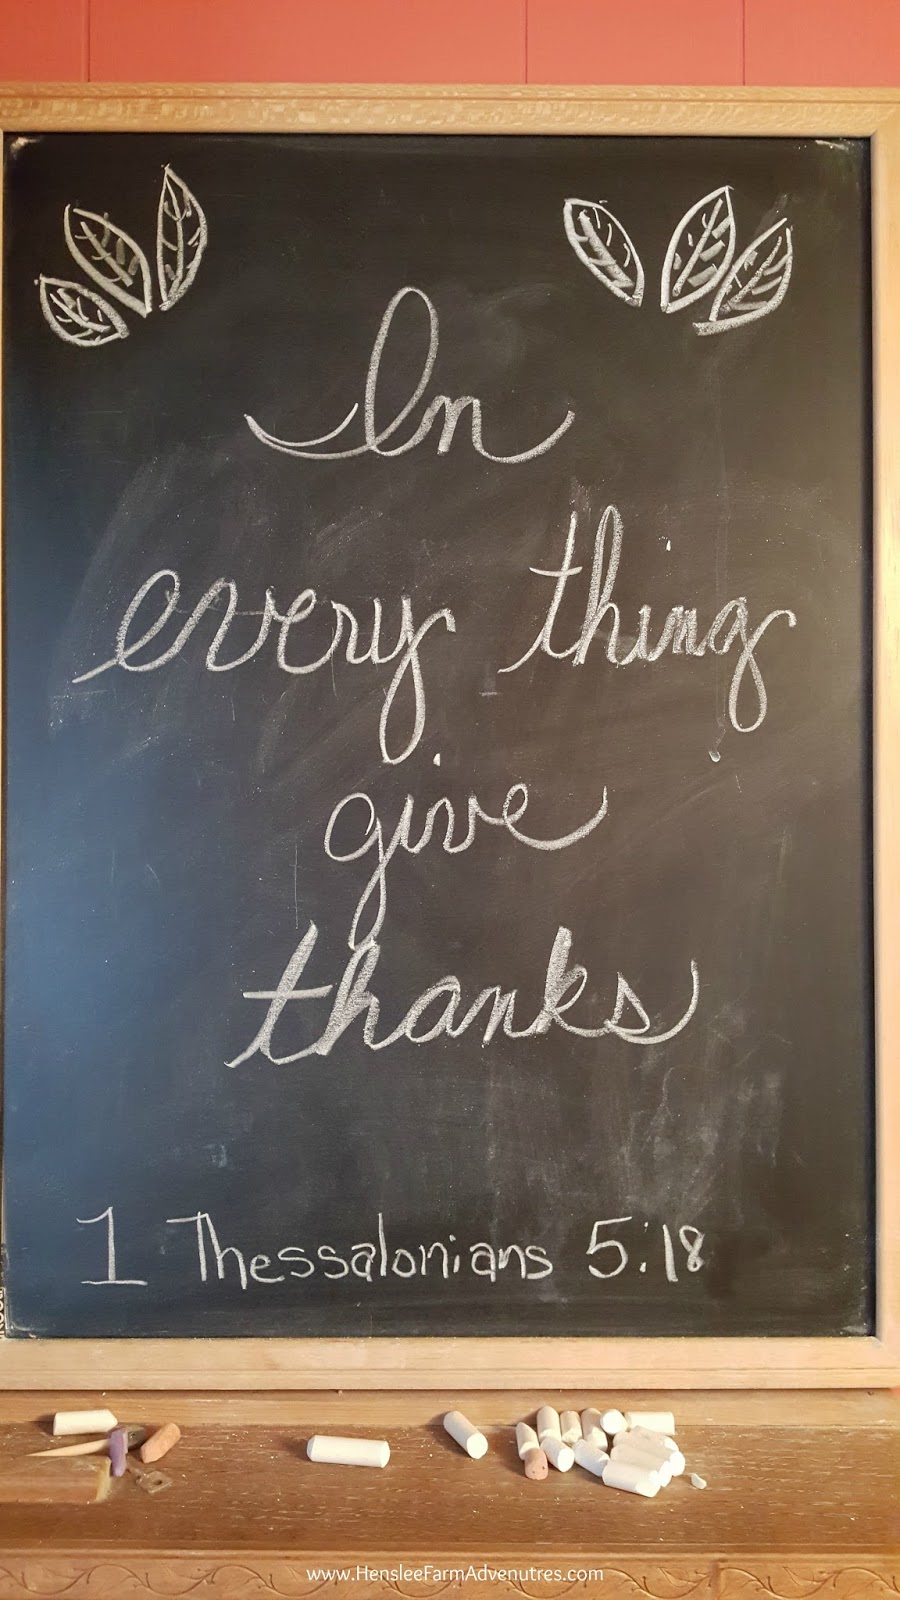 In
every thing
give
thanks
1 Thessalonians 5:18
www.HensleeFarmAdvenutres.com